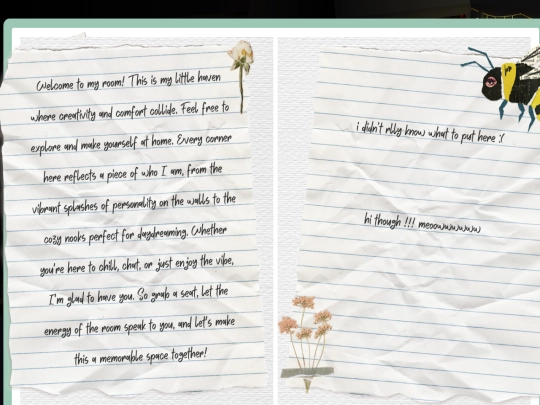 Welcome to my room! This is my little haven
where creativity and comfort collide. Feel free to
explore and make yourself at home. Every corner
here reflects a piece of who I am, from the
vibrant splashes of personality on the walls to the
cozy nooks perfect for daydreaming. Whether
you're here to chill, chat, or just enjoy the vibe,
I'm glad to have you. So grab a seat, let the
energy of the room speak to you, and let's make
this a memorable space together!
i didn't rlly know what to put here :(
hi though !!! meowwwwwww